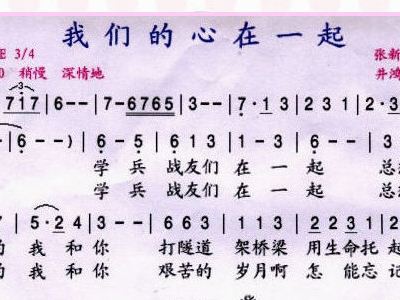 我们的心在一起
E 3/4
张新
0 稍慢 深情地
井鸿
3
717 | 6 - - | 7 - 6765 | 3 - - | 7 · 1 3 | 2 3 1 | 2
6 - - | 6 - -) | 6 - 5 | 6 1 3 | 2 - 1 | 3 - - | 6
学 兵 战友们 在 一 起 总
学 兵 战友们 在 一 起
7 | 5 · 2 4 | 3 - - | 6 6 3 | 1 1 2 | 2 2 3 1 | 2
的 我 和 你 打隧道 架桥梁 用生命托 起
的 我 和 你 艰苦的 岁月啊 怎 能忘 记